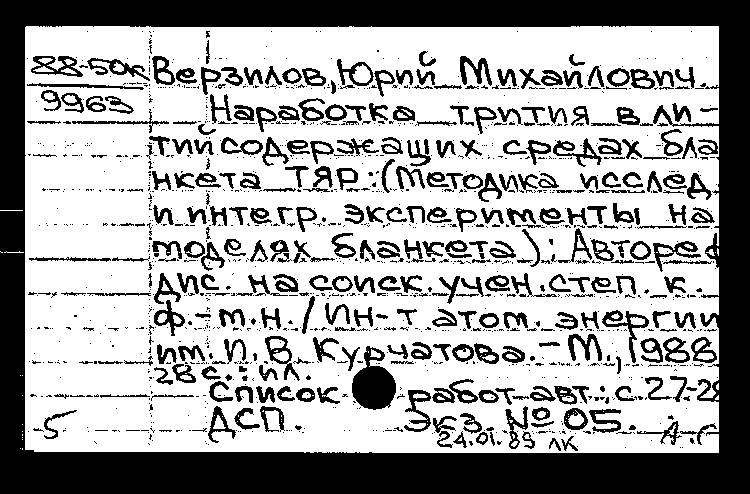 88-50к Верзилов, Юрий Михайлович.
9963 Наработка трития в ли-
тийсодержащих средах бла
нкета ТЯР: (Методика исслед.
и интегр. эксперименты на
моделях бланкета): Автореф
дис. на соиск. учен. степ. к.
ф.-м.н. / Ин-т атом. энергии
им. И. В. Курчатова. - М., 1988
28 с.: ил.
Список работ авт.: с. 27-28
5 ДСП. Экз. № 05.
24.01.89 ЛК